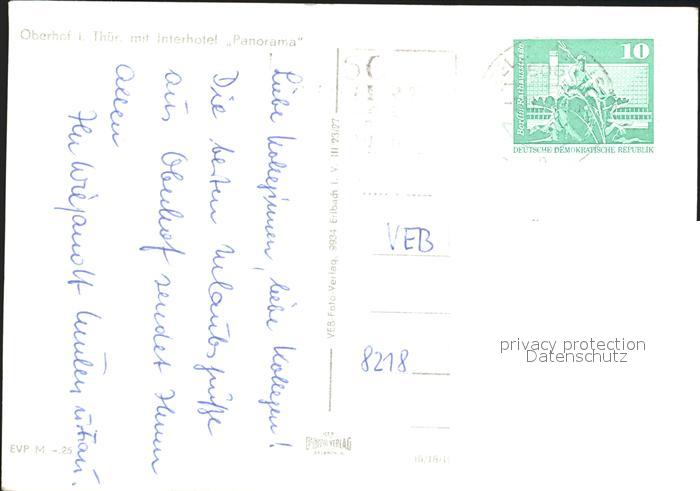 Oberhof i. Thür. mit Interhotel „Panorama"
Liebe Kolleginnen, liebe Kollegen!
Die besten Urlaubsgrüße
aus Oberhof sendet Ihnen
allen
Ihr
u. Frau.
VEB Foto-Verlag, 9934 Erlbach i. V.
EVP M -.25
VEB
8218
10
Berlin, Rathausstraße
DEUTSCHE DEMOKRATISCHE REPUBLIK
privacy protection
Datenschutz